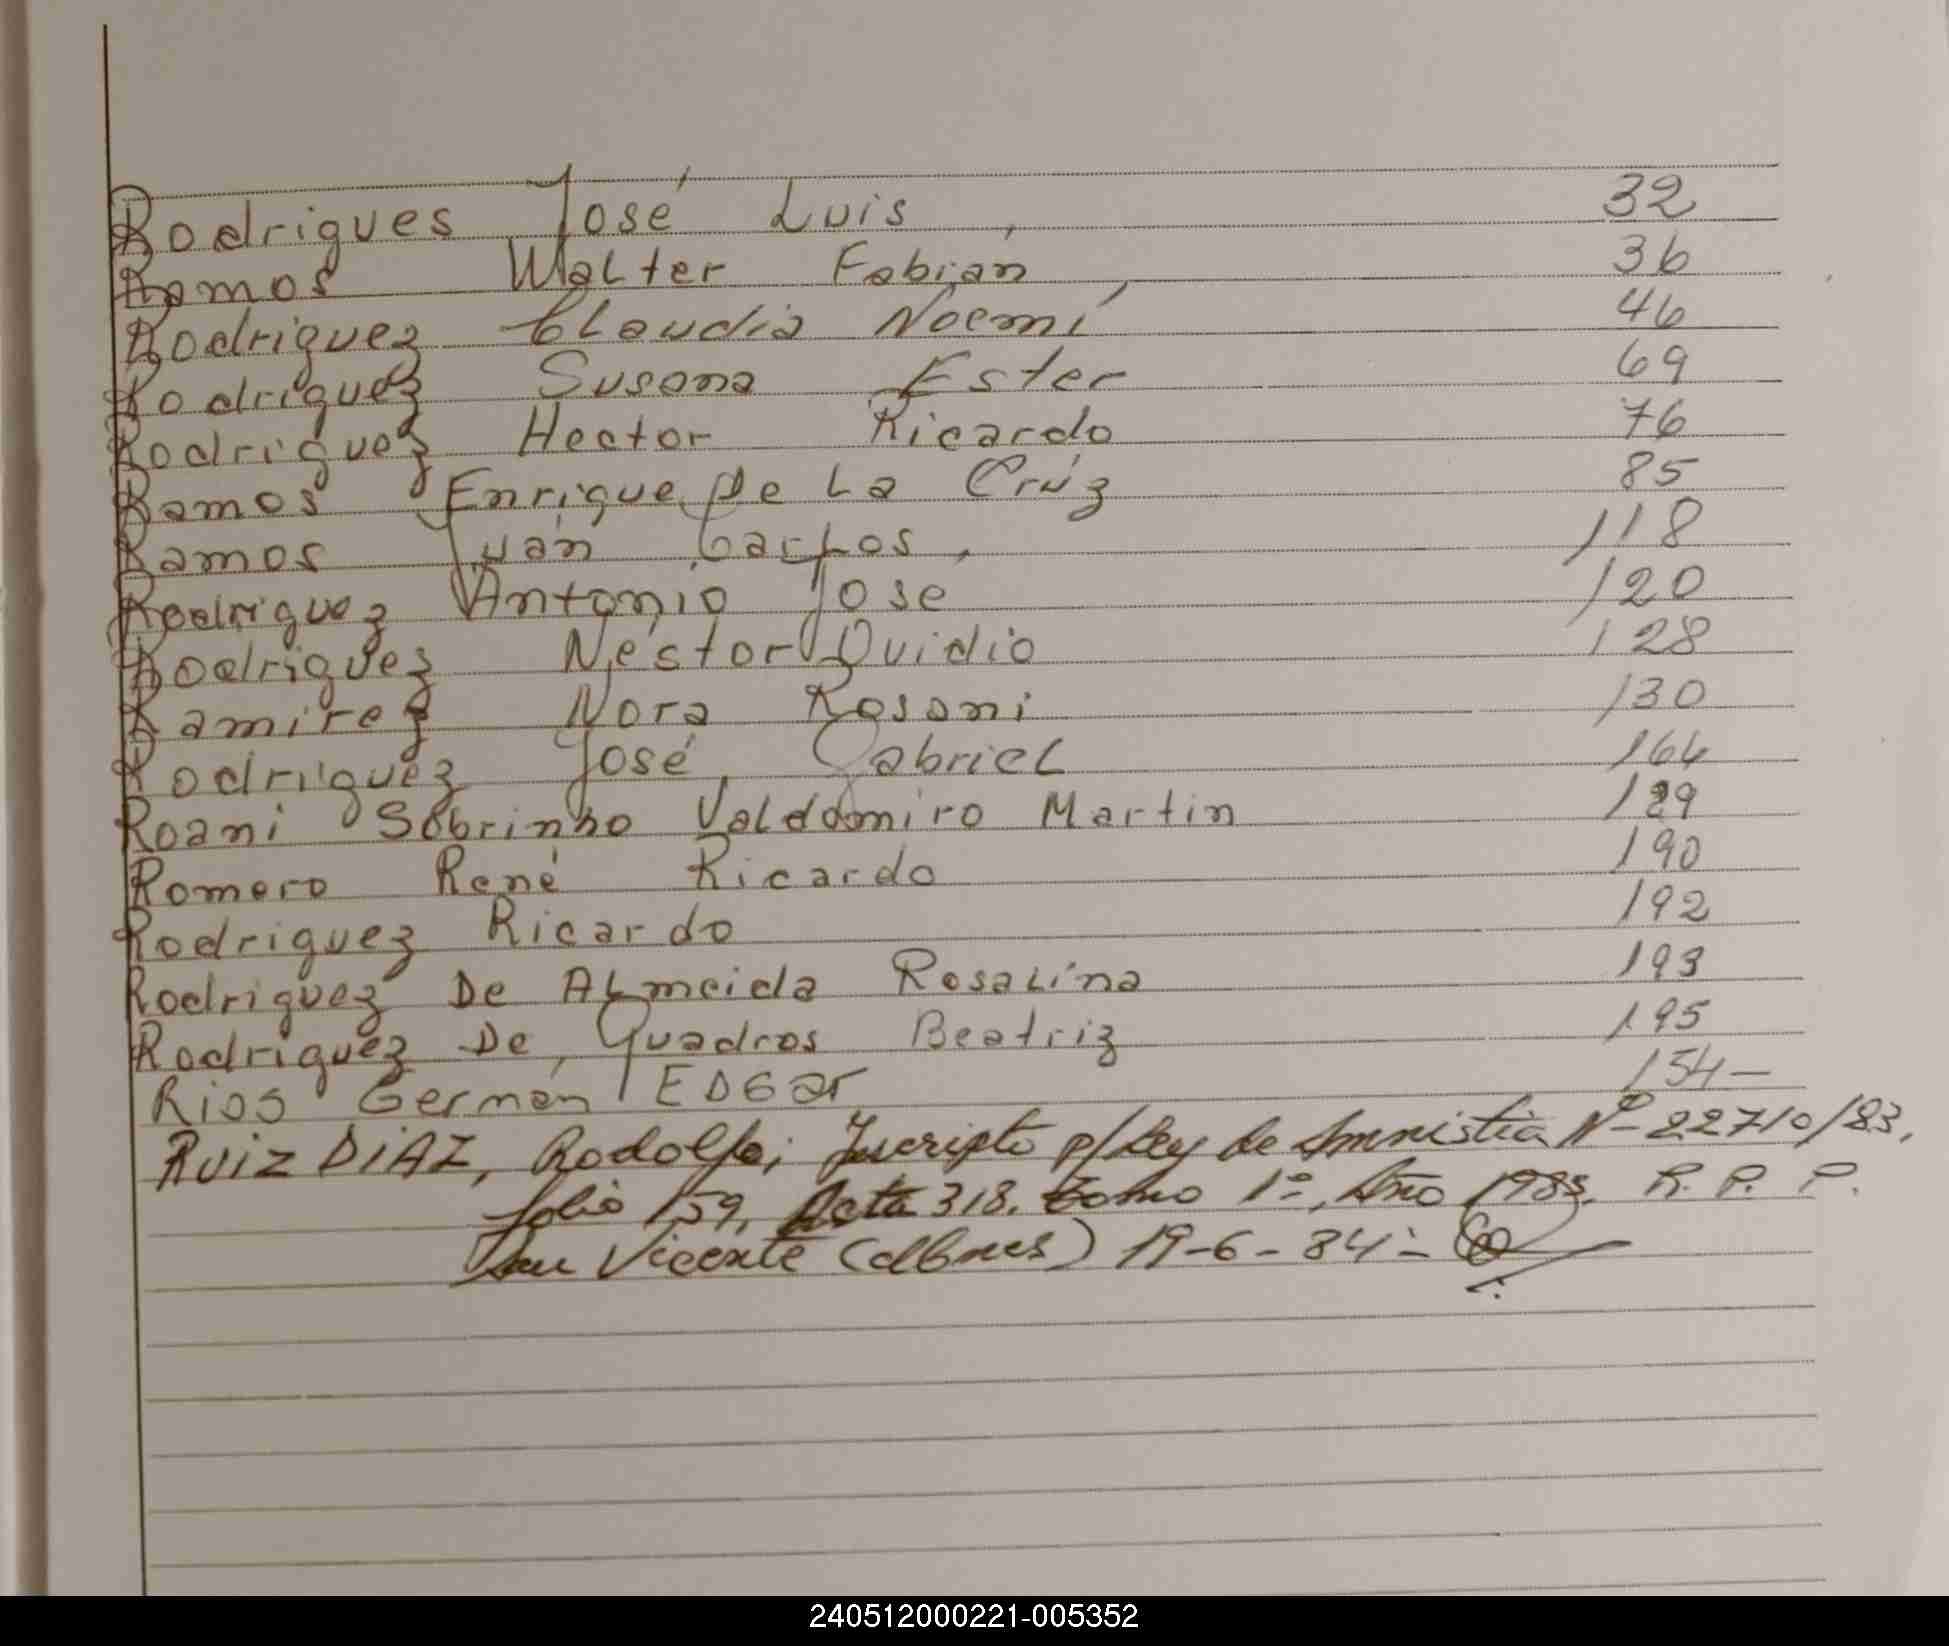 Rodrigues José Luis 32
Ramos Walter Fabián 36
Rodriguez Claudia Noemí 46
Rodriguez Susana Ester 69
Rodriguez Hector Ricardo 76
Ramos Enrique De La Crúz 85
Ramos Juán Carlos 118
Rodriguez Antonio José 120
Rodriguez Néstor Ovidio 128
Ramirez Nora Rosani 130
Rodriguez José Gabriel 164
Roani Sobrinho Valdomiro Martin 189
Romero René Ricardo 190
Rodriguez Ricardo 192
Rodriguez De Almeida Rosalina 193
Rodriguez De Quadros Beatriz 195
Rios Germán EDGar 154-
RUiZ DiAZ, Rodolfo; Inscripto p/Ley de Amnistia Nº-22710/83,
folio 159, Acta 318. Tomo 1º, Año 1983. R. P. P.
San Vicente (Mnes) 19-6-84-
240512000221-005352